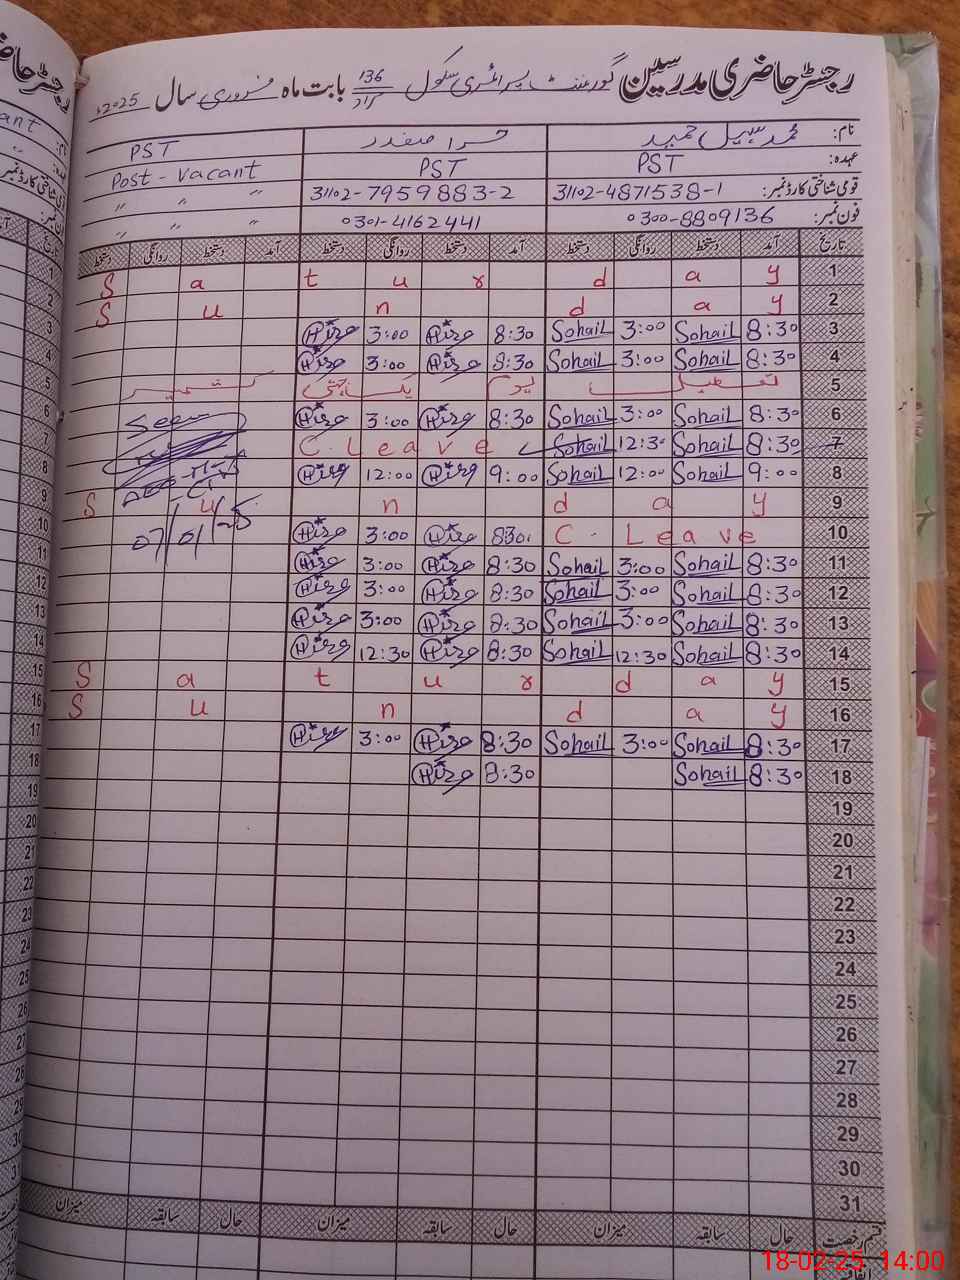 رجسٹر حاضری مدرسین گورنمنٹ پرائمری سکول 136 مراد بابت ماہ فروری سال 2025ء
نام: محمد سہیل حمید حرا صفدر PST
عہدہ: PST PST Post - vacant
قومی شناختی کارڈ نمبر: 31102-4871538-1 31102-7959883-2 " " "
فون نمبر: 0300-8809136 0301-4162441 " " "
تاریخ آمد دستخط روانگی دستخط آمد دستخط روانگی دستخط آمد دستخط روانگی دستخط
1 S a t u r d a y
2 S u n d a y
3 8:30 Sohail 3:00 Sohail 8:30 Hira 3:00 Hira
4 8:30 Sohail 3:00 Sohail 8:30 Hira 3:00 Hira
5 تعطیل یوم یکجہتی کشمیر
6 8:30 Sohail 3:00 Sohail 8:30 Hira 3:00 Hira Seen
7 8:30 Sohail 12:30 Sohail C. Leave
8 9:00 Sohail 12:00 Sohail 9:00 Hira 12:00 Hira
9 S u n d a y
10 C. Leave 8:30 Hira 3:00 Hira 07/01/25
11 8:30 Sohail 3:00 Sohail 8:30 Hira 3:00 Hira
12 8:30 Sohail 3:00 Sohail 8:30 Hira 3:00 Hira
13 8:30 Sohail 3:00 Sohail 8:30 Hira 3:00 Hira
14 8:30 Sohail 12:30 Sohail 8:30 Hira 12:30 Hira
15 S a t u r d a y
16 S u n d a y
17 8:30 Sohail 3:00 Sohail 8:30 Hira 3:00 Hira
18 8:30 Sohail 8:30 Hira
19
20
21
22
23
24
25
26
27
28
29
30
31
قسم رخصت حال سابقہ میزان حال سابقہ میزان حال سابقہ میزان
18-02-25 14:00